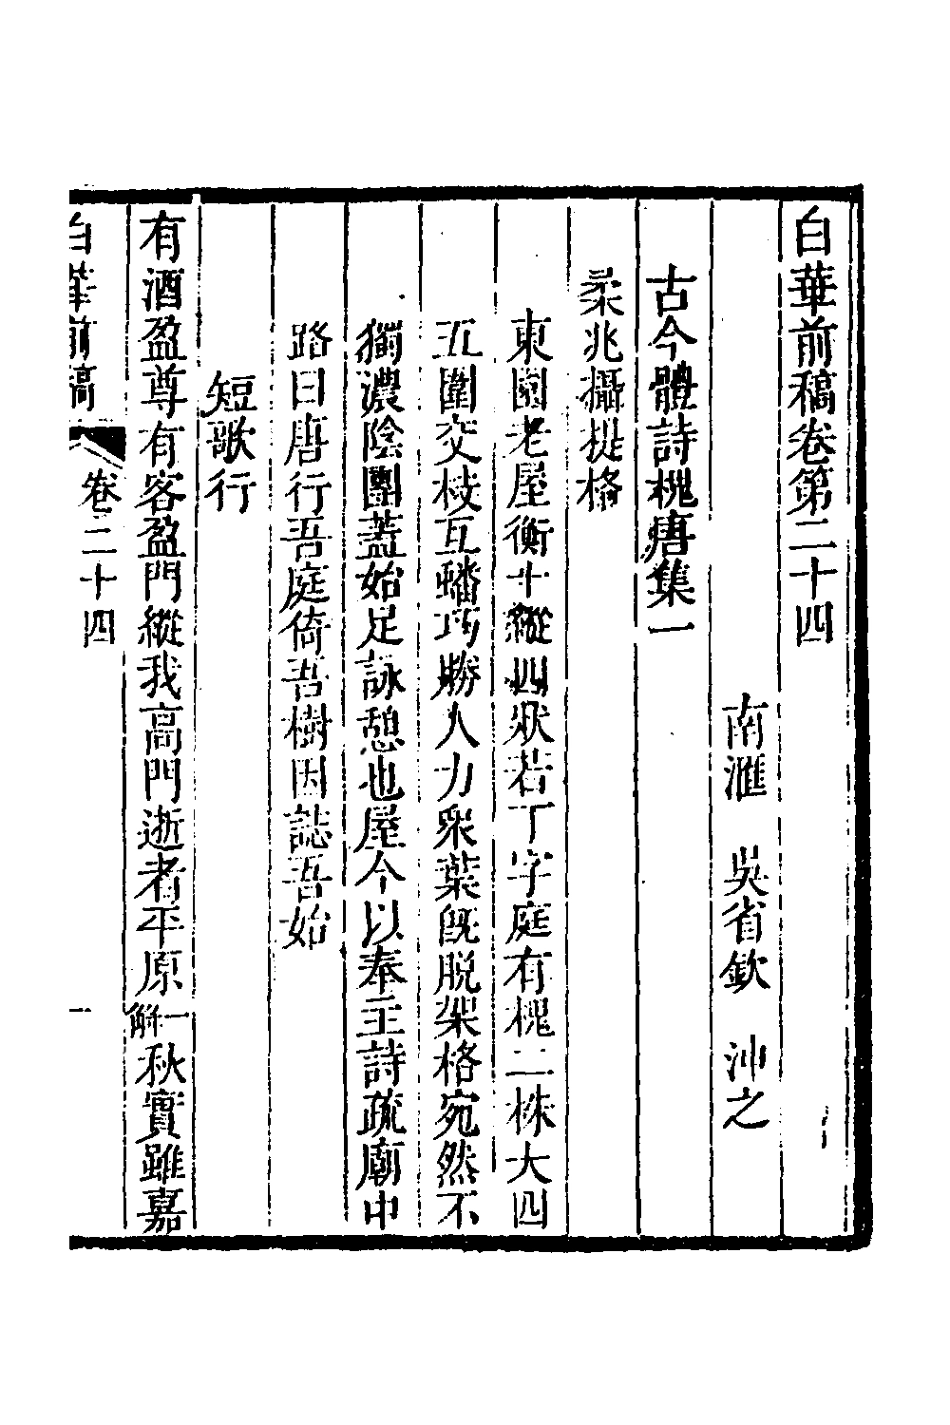 白華前稿卷第二十四
南滙　吳省欽　沖之
古今體詩槐唐集一
柔兆攝提格
東園老屋衡十縱四狀若丁字庭有槐二株大四
五圍交枝互蟠巧勝人力衆葉旣脫架格宛然不
獨濃陰團蓋始足詠憩也屋今以奉主詩疏廟中
路曰唐行吾庭倚吾樹因誌吾始
短歌行
有酒盈尊有客盈門縱我高門逝者平原一解秋實雖嘉
白華前稿　卷二十四　一